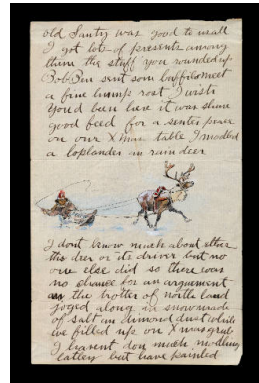 old Santy was good to us all
I got lots of presents among
them the stuff you rounded up
Bob Den sent som buffilo meet
a fine hump rost I wish
Youd been here it was shure
good feed for a senter peace
on our Xmas table I modled
a loplander in raindeer
I dont know much about ether
this deer or its driver but no
one else did so there was
no chance for an argument
as the trotter of north land
joged along in snow made
of salt an dimond dust while
we filled up on Xmas grub
I havent don much modling
latley but have painted